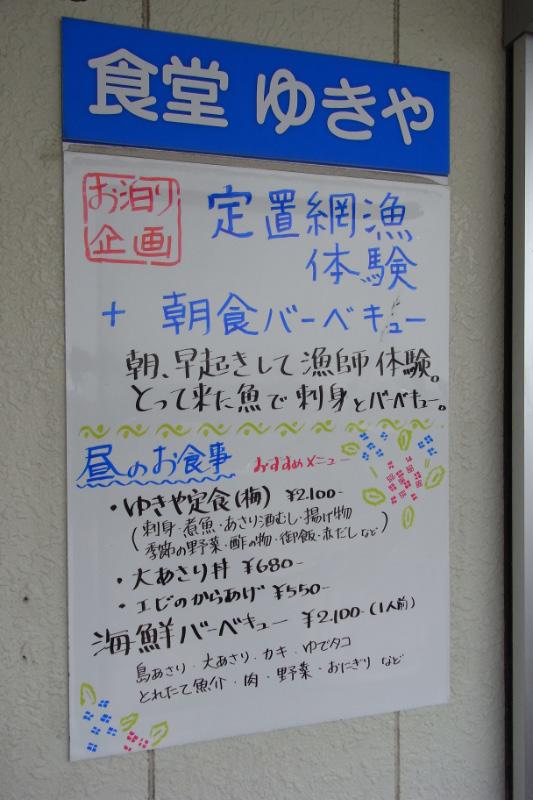 食堂 ゆきや
お泊り
企画
定置網漁
体験
+ 朝食バーベキュー
朝、早起きして漁師体験。
とって来た魚で刺身とバーベキュー。
昼のお食事 おすすめメニュー
・ゆきや定食(梅) ¥2.100-
(刺身・煮魚・あさり酒むし・揚げ物
季節の野菜・酢の物・御飯・赤だしなど)
・大あさり丼 ¥680-
・エビのからあげ ¥550-
海鮮バーベキュー ¥2,100-(1人前)
島あさり・大あさり・カキ・ゆでタコ
とれたて魚介・肉・野菜・おにぎり など